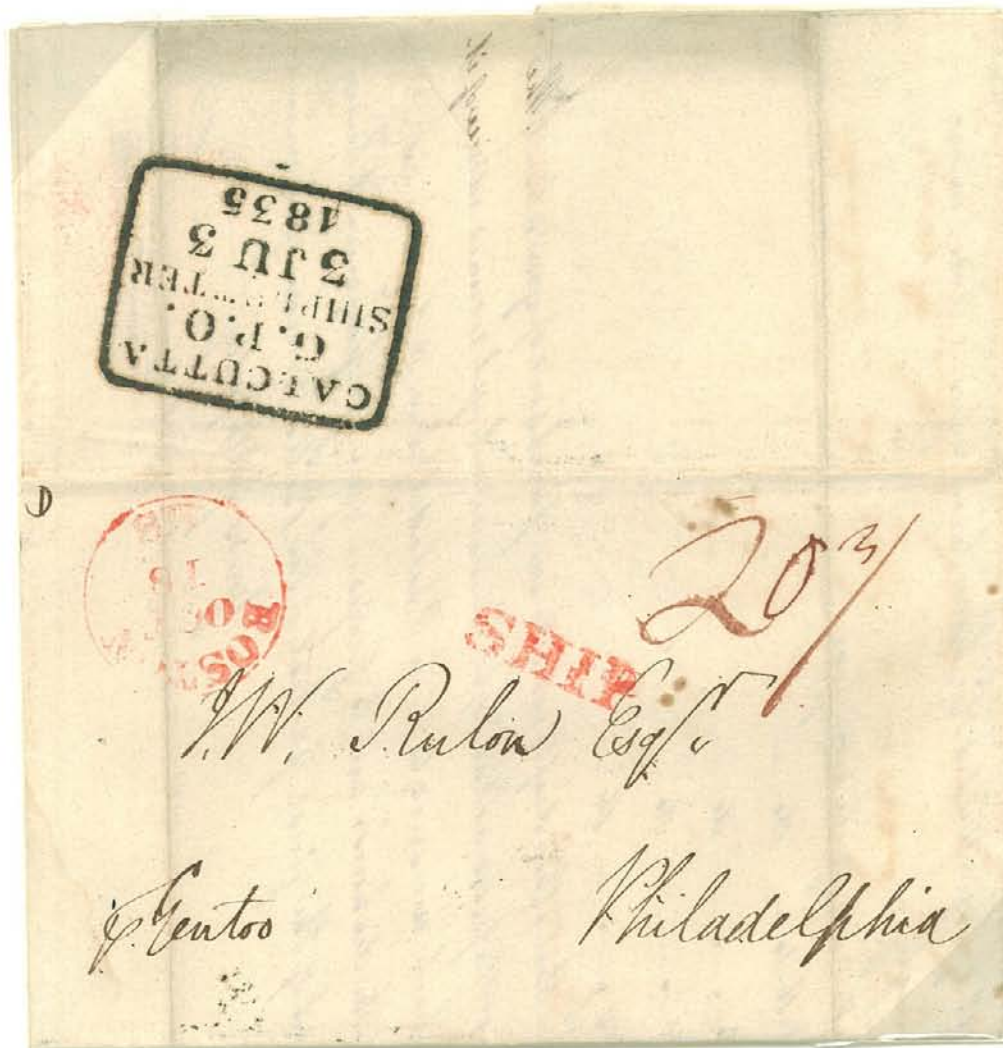 CALCUTTA
G. P. O.
SHIP LETTER
3 JU 3
1835
BOSTON
OCT
20 3/
SHIP
J. W. Rulon Esqr.
p. Gentoo
Philadelphia